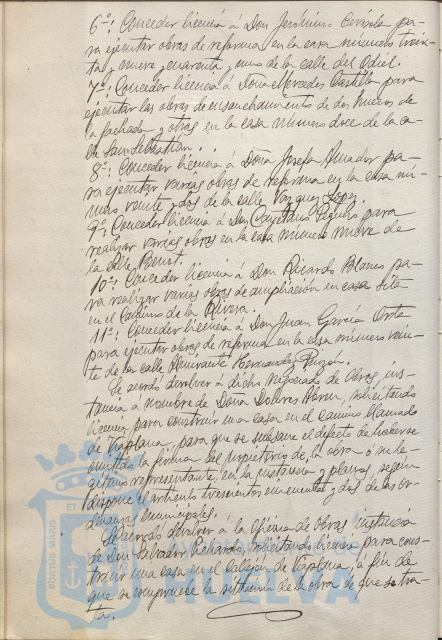 6º: Conceder licencia á Don Jerónimo Cerisola pa-
ra ejecutar obras de reforma en la casa número trein-
ta y nueve y cuarenta y uno de la calle del Odiel.
7º: Conceder licencia á Doña Mercedes Castilla para
ejecutar las obras de ensanchamiento de dos huecos de
la fachada y otras en la casa número doce de la ca-
lle San Sebastian.
8º: Conceder licencia á Doña Josefa Amador pa-
ra ejecutar varias obras de reforma en la casa nú-
mero veinte y dos de la calle Vazquez Lopez.
9º: Conceder licencia á Don Cayetano para
realizar varias obras en la casa número nueve de
la calle Benot.
10º: Conceder licencia á Don Ricardo Blanco pa-
ra realizar varias obras de ampliación en casa sita
en el Camino de la Rivera.
11º: Conceder licencia á Don Juan García Orta
para ejecutar obras de reforma en la casa número vein-
te de la calle Almirante Hernandez Pinzón.
Se acordó devolver á dicho Negociado de Obras, ins-
tancia á nombre de Doña Dolores solicitando
licencia para construir una casa en el camino llamado
de para que se subsane el defecto de haberse
omitido la firma del propietario de la obra ó su le-
gitimo representante, en la instancia y planos, segun
dispone el articulo trescientos cincuenta y dos de las or-
denanzas municipales.
Se acordó devolver á la Oficina de obras instancia
de Don Salvador solicitando licencia para cons-
truir una casa en el Callejón de á fin de
que se compruebe la situación de la obra de que se tra-
ta.
PORTUS MARIS ET
HUELVA